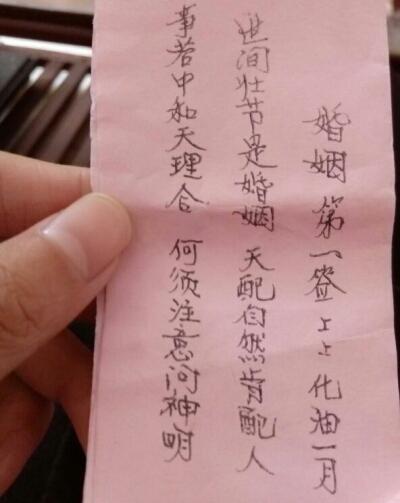 婚姻 第一签 上上 化油一月
世间壮节是婚姻 天配自然肯配人
事若中和天理合 何须注意问神明